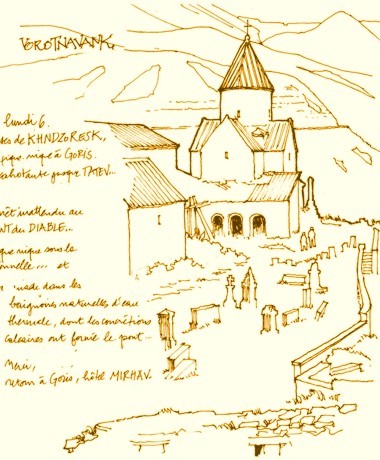 VOROTNAVANK,
lundi 6.
tes de KHNDZORESK,
pique.nique à GORIS.
cahotante jusque TATEV...
rêt inattendu au
NT du DIABLE...
que nique sous le
nnelle... et
dans les
baignoires naturelles d'eau
thermale, dont les concrétions
calcaires ont formé le pont...
retour à Goris, hôtel MIRHAV.